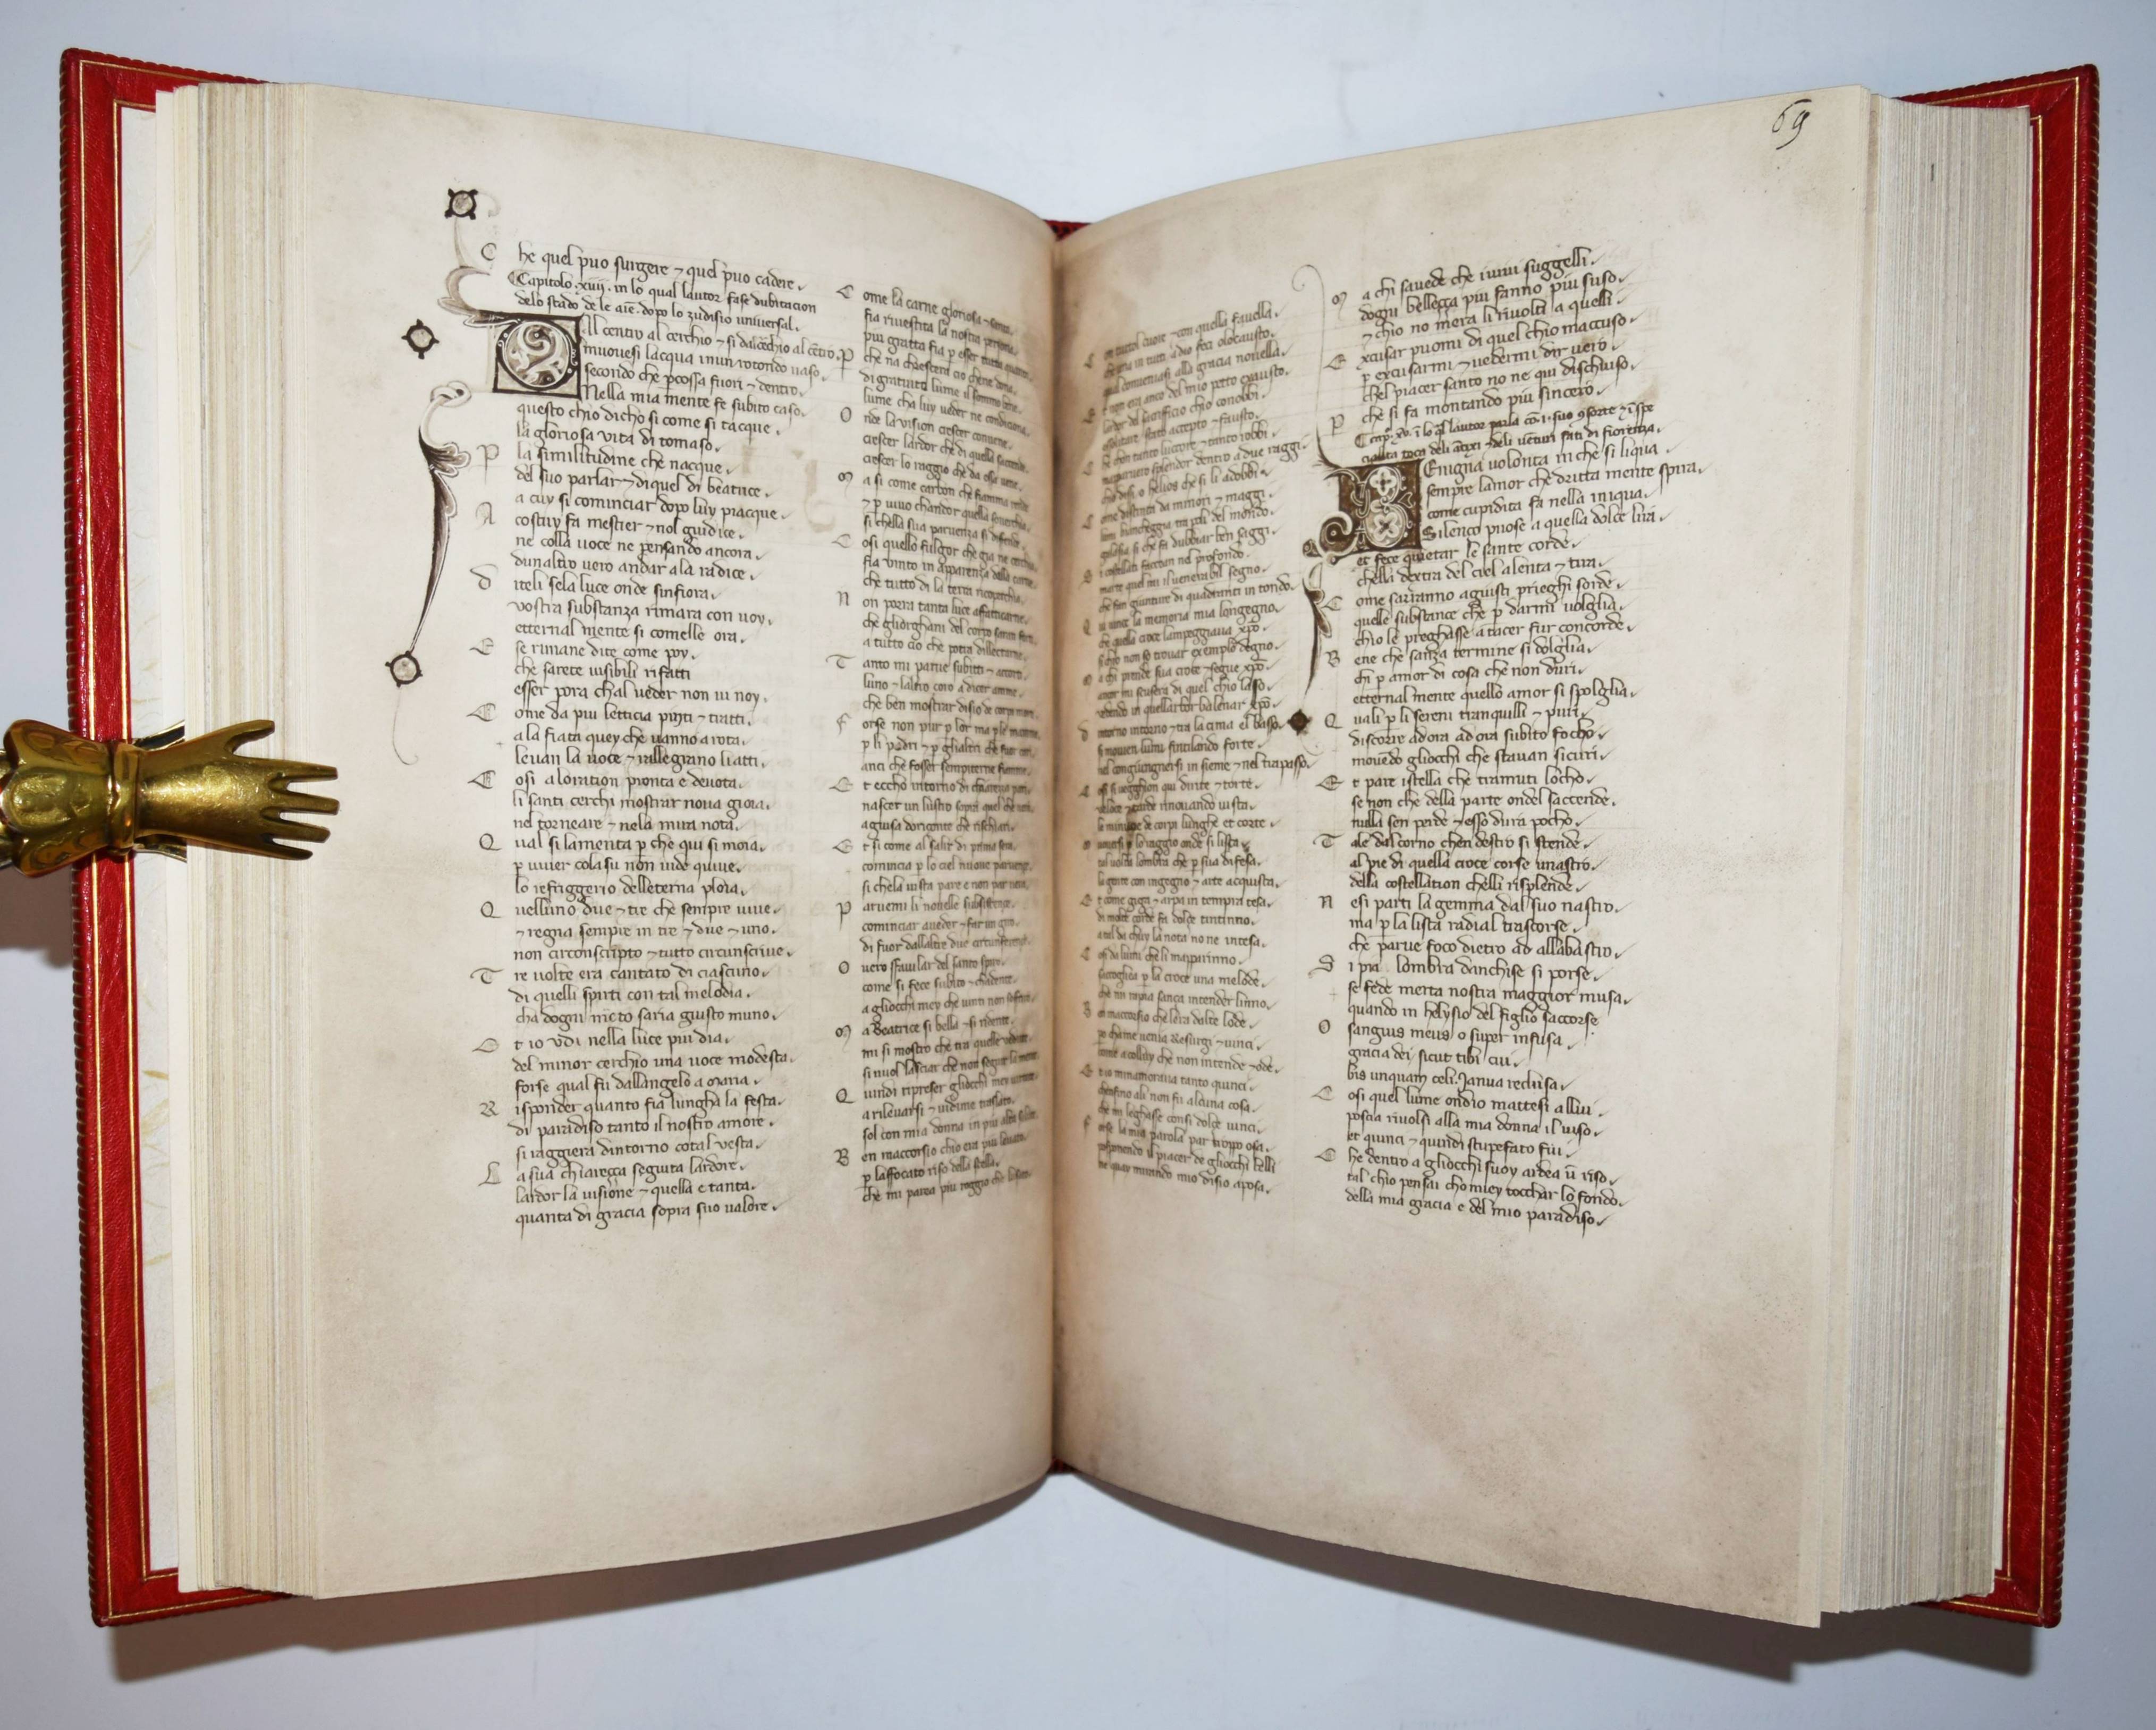 C he quel puo surgere ⁊ quel puo cadere.
Capitolo .xiiij. in lo qual lautor fase dubitacion
delo stado de le aīe. dopo lo zudisio universal.
D Al centro al cerchio ⁊ si dal cerchio al cētro.
muouesi lacqua inun rotondo uaso.
secondo che pcossa fuori ⁊ dentro.
Nella mia mente fe subito caso.
questo chio dicho si come si tacque.
la gloriosa vita di tomaso.
P la similitudine che nacque.
del suo parlar ⁊ di quel di beatrice.
a cuy si cominciar dopo luy piacque.
A costuy fa mestier ⁊ nol gudice.
ne colla uoce ne pensando ancora.
dunaltro uero andar a la radice.
D iteli sela luce onde sinfiora.
vostra substanza rimara con uoy.
etternal mente si comelle ora.
E se rimane dite come poy.
che sarete uisibili rifatti
esser pora chal ueder non iu noy.
C ome da piu letticia pinti ⁊ tratti.
a la fiata quey che uanno a rota.
leuan la uoce ⁊ rallegrano li atti.
C osi a loration pronta e deuota.
li santi cerchi mostrar noua gioia.
nel torneare ⁊ nela mira nota.
Q ual si lamenta p che qui si moia.
p uiuer colasu non uide quiue.
lo refriggerio delleterna ploia.
Q uelluno due ⁊ tre che sempre uiue.
⁊ regna sempre in tre ⁊ due ⁊ uno.
non circunscripto ⁊ tutto circunscriue.
T re uolte era cantato di ciascuno.
di quelli spirti con tal melodia.
cha dogni merto saria giusto muno.
E t io vdi nella luce piu dia.
del minor cerchio una uoce modesta.
forse qual fu dallangelo a maria.
R isponder quanto fia lungha la festa.
di paradiso tanto il nostro amore.
si raggiera dintorno cotal vesta.
L a sua chiarezza seguita lardore.
lardor la uisione ⁊ quella e tanta.
quanta di gracia sopra suo ualore.
C ome la carne gloriosa ⁊ santa.
fia riuestita la nostra persona.
piu gratta fia p esser tutta quanta.
P che na chrescera cio chene dona.
di gratuito lume il sommo bene.
lume cha luy ueder ne condiciona.
O nde la vision crescer conuene.
crescer lardor che di quella saccende.
crescer lo raggio che da essa uene.
M a si come carbon che fiamma rende
⁊ p uiuo chandor quella souerchia.
si chella sua paruenza si difende.
C osi quello fulgor che gia ne cerchia
fia vinto in apparenza dalla carne.
che tutto di la terra ricoperchia.
N on porra tanta luce affaticarne.
che gliorghani del corpo saran forti
a tutto cio che potra dillectarne.
T anto mi parue subiti ⁊ accorti.
luno ⁊ laltro coro a dicer amme.
che ben mostrar disio de corpi morti.
F orse non pur p lor ma p le mamme.
p li padri ⁊ p ghialtri che fuor cari.
anci che fosser sempiterne fiamme.
E t eccho intorno di chiareza pari.
nascer un lustro sopra quel che uera.
a guisa dorizonte che rischiari.
E t si come al salir di prima sera.
comincia p lo ciel nuoue paruenze.
si chela uista pare e non par uera.
P aruemi li nouelle subsistenze.
cominciar a ueder ⁊ far un giro.
di fuor dallaltre due circunferenze.
O uero sfauilar del santo spiro.
come si fece subito ⁊ chadente.
a gliocchi mey che uinti non soffriro.
M a Beatrice si bella ⁊ si ridente.
mi si mostro che tra quelle vedute
si uuol lasciar che non seguir la mente.
Q uindi ripreser gliocchi mey uirtute
a rileuarsi ⁊ uidime traslato.
sol con mia donna in piu alta salute.
B en maccorsio chio era piu leuato.
p laffocato riso della stella.
che mi parea piu roggio che lusato.
69
C on tuttol cuore ⁊ con quella fauella.
che una in tutti a dio feci olocausto.
qual conueniasi alla gracia nouella.
E t non era anco del mio petto exausto.
lardor del sacrificio chio conobbi.
essolitare stato accepto ⁊ fausto.
C he chon tanto luccore ⁊ tanto robbi.
mapparuero splendor dentro a due raggi.
chio dissi o helios che si li adobbi.
C ome distinta da minori ⁊ maggi.
lumi biancheggia tra poli del mondo.
galassia si che fa dubbiar ben saggi.
S i costellati faccean nel profondo.
marte quei rai il uenerabil segno.
che fan giunture di quadranti in tondo.
Q ui uince la memoria mia longegno.
che quella croce lampeggiaua xpo.
si chio non so trouar exemplo degno.
M a chi prende sua croce ⁊ segue xpo.
ancor mi scusera di quel chio lasso.
vedendo in quellarbor balenar xpo.
D intorno intorno ⁊ tra la cima el basso.
si mouien lumi sintilando forte.
nel congiungnersi in sieme ⁊ nel trapasso.
C osi si uegghion qui dirite ⁊ torte.
veloce ⁊ tarde rinouando uista.
le minuge de corpi lunghe et corte.
M ouersi p lo raggio onde si lista.
tal uolta lombra che p sua difesa.
la gente con ingegno ⁊ arte acquista.
E t come giga ⁊ arpa in tempra tesa.
di molte corde fa dolce tintinno.
a tal da chuy la nota no ne intesa.
C osi da lumi cheli mapparinno.
saccoglica p la croce una melode.
che mi rapia sanca intender linno.
B en maccorsio chelera dalte lode.
po chame uenia Resurgi ⁊ uinci.
come a colluy che non intende ⁊ ode.
E t io minamoraua tanto quinci.
chenfino ali non fu alcuna cosa.
che mi leghasse consi dolce uinci.
F orse la mia parola par troppo osa.
posponendo il piacer de gliocchi belli
ne quay mirando mio disio a posa.
M a chi sauede che iuiui suggelli.
dogni bellezza piu fanno piu suso.
⁊ chio no mera li riuolti a quelli.
E xcusar puomi di quel chio maccuso.
p excusarmi ⁊ uedermi dir uero.
chel piacer santo no ne qui dischiuso.
P che si fa montando piu sincero.
B Enigna uolonta in che si liqua.
sempre lamor che dritta mente spira.
come cupidita fa nella iniqua.
Silenco puose a quella dolce lira.
et fece quietar le sante corde.
chella dextra del ciel alenta ⁊ tira.
C ome saranno agiusti prieghi sorde.
quelle substance che p darmi uolglia.
chio le preghasse a tacer fur concorde.
B ene che sanza termine si dolglia.
chi p amor di cosa che non duri.
etternal mente quello amor si spolglia.
Q uali p li sereni tranquilli ⁊ puri.
discorre ad ora ad ora subito focho.
mouēdo gliocchi che stauan sicuri.
E t pare istella che tramuti locho.
se non che della parte ondel saccende.
nulla sen perde ⁊ esso dura pocho.
T ale dal corno chen destro si stende.
al pie di quella croce corse unastro.
della costellation chelli risplende.
N esi parti la gemma dal suo nastro.
ma p la lista radial trascorse.
che parue foco dietro ad allabastro.
S i pia lombra danchise si porse.
se fede merta nostra maggior musa.
quando in helysio del figlio saccorse
O sanguis meus o super infusa.
gracia dei sicut tibi cui.
bis unquam celi. Janua reclusa.
C osi quel lume ondio mattesi allui.
poscia riuolsi alla mia donna il uiso.
et quinci ⁊ quindi stupefato fui.
C he dentro a gliocchi suoy ardea ū riso.
tal chio pensai cho miey tocchar lo fondo.
della mia gracia e del mio paradiso.